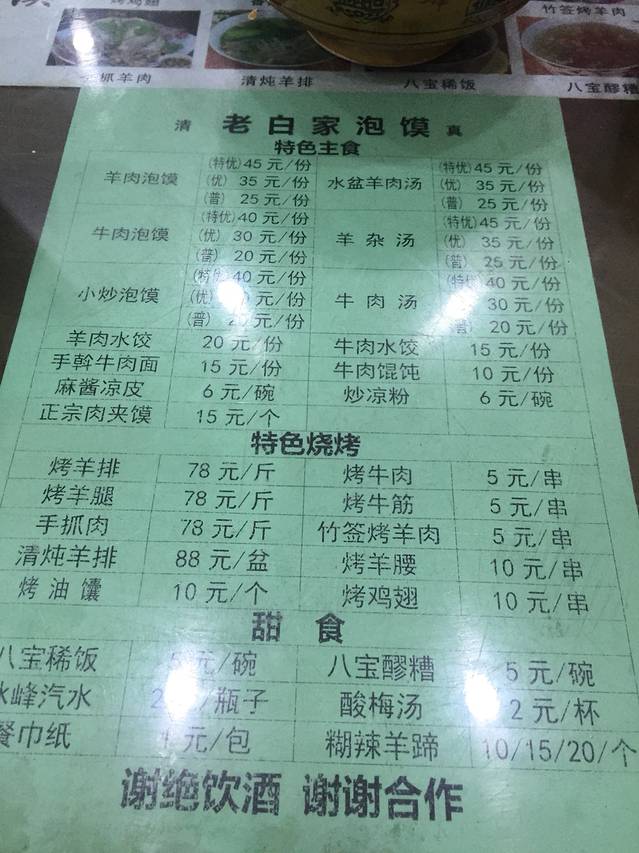 烤鸡翅
竹签烤羊肉
抓羊肉 清炖羊排 八宝稀饭 八宝醪糟
清 老白家泡馍 真
特色主食
羊肉泡馍 (特优) 45 元/份 水盆羊肉汤 (特优) 45 元/份
(优) 35 元/份 (优) 35 元/份
(普) 25 元/份 (普) 25 元/份
牛肉泡馍 (特优) 40 元/份 羊杂汤 (特优) 45 元/份
(优) 30 元/份 (优) 35 元/份
(普) 20 元/份 (普) 25 元/份
小炒泡馍 (特优) 40 元/份 牛肉汤 (特优) 40 元/份
(优) 元/份 30 元/份
(普) 元/份 (普) 20 元/份
羊肉水饺 20 元/份 牛肉水饺 15 元/份
手斡牛肉面 15 元/份 牛肉馄饨 10 元/份
麻酱凉皮 6 元/碗 炒凉粉 6 元/碗
正宗肉夹馍 15 元/个
特色烧烤
烤羊排 78 元/斤 烤牛肉 5 元/串
烤羊腿 78 元/斤 烤牛筋 5 元/串
手抓肉 78 元/斤 竹签烤羊肉 5 元/串
清炖羊排 88 元/盆 烤羊腰 10 元/串
烤油馕 10 元/个 烤鸡翅 10 元/串
甜食
八宝稀饭 5 元/碗 八宝醪糟 5 元/碗
冰峰汽水 2 元/瓶子 酸梅汤 2 元/杯
餐巾纸 1 元/包 糊辣羊蹄 10/15/20/个
谢绝饮酒 谢谢合作